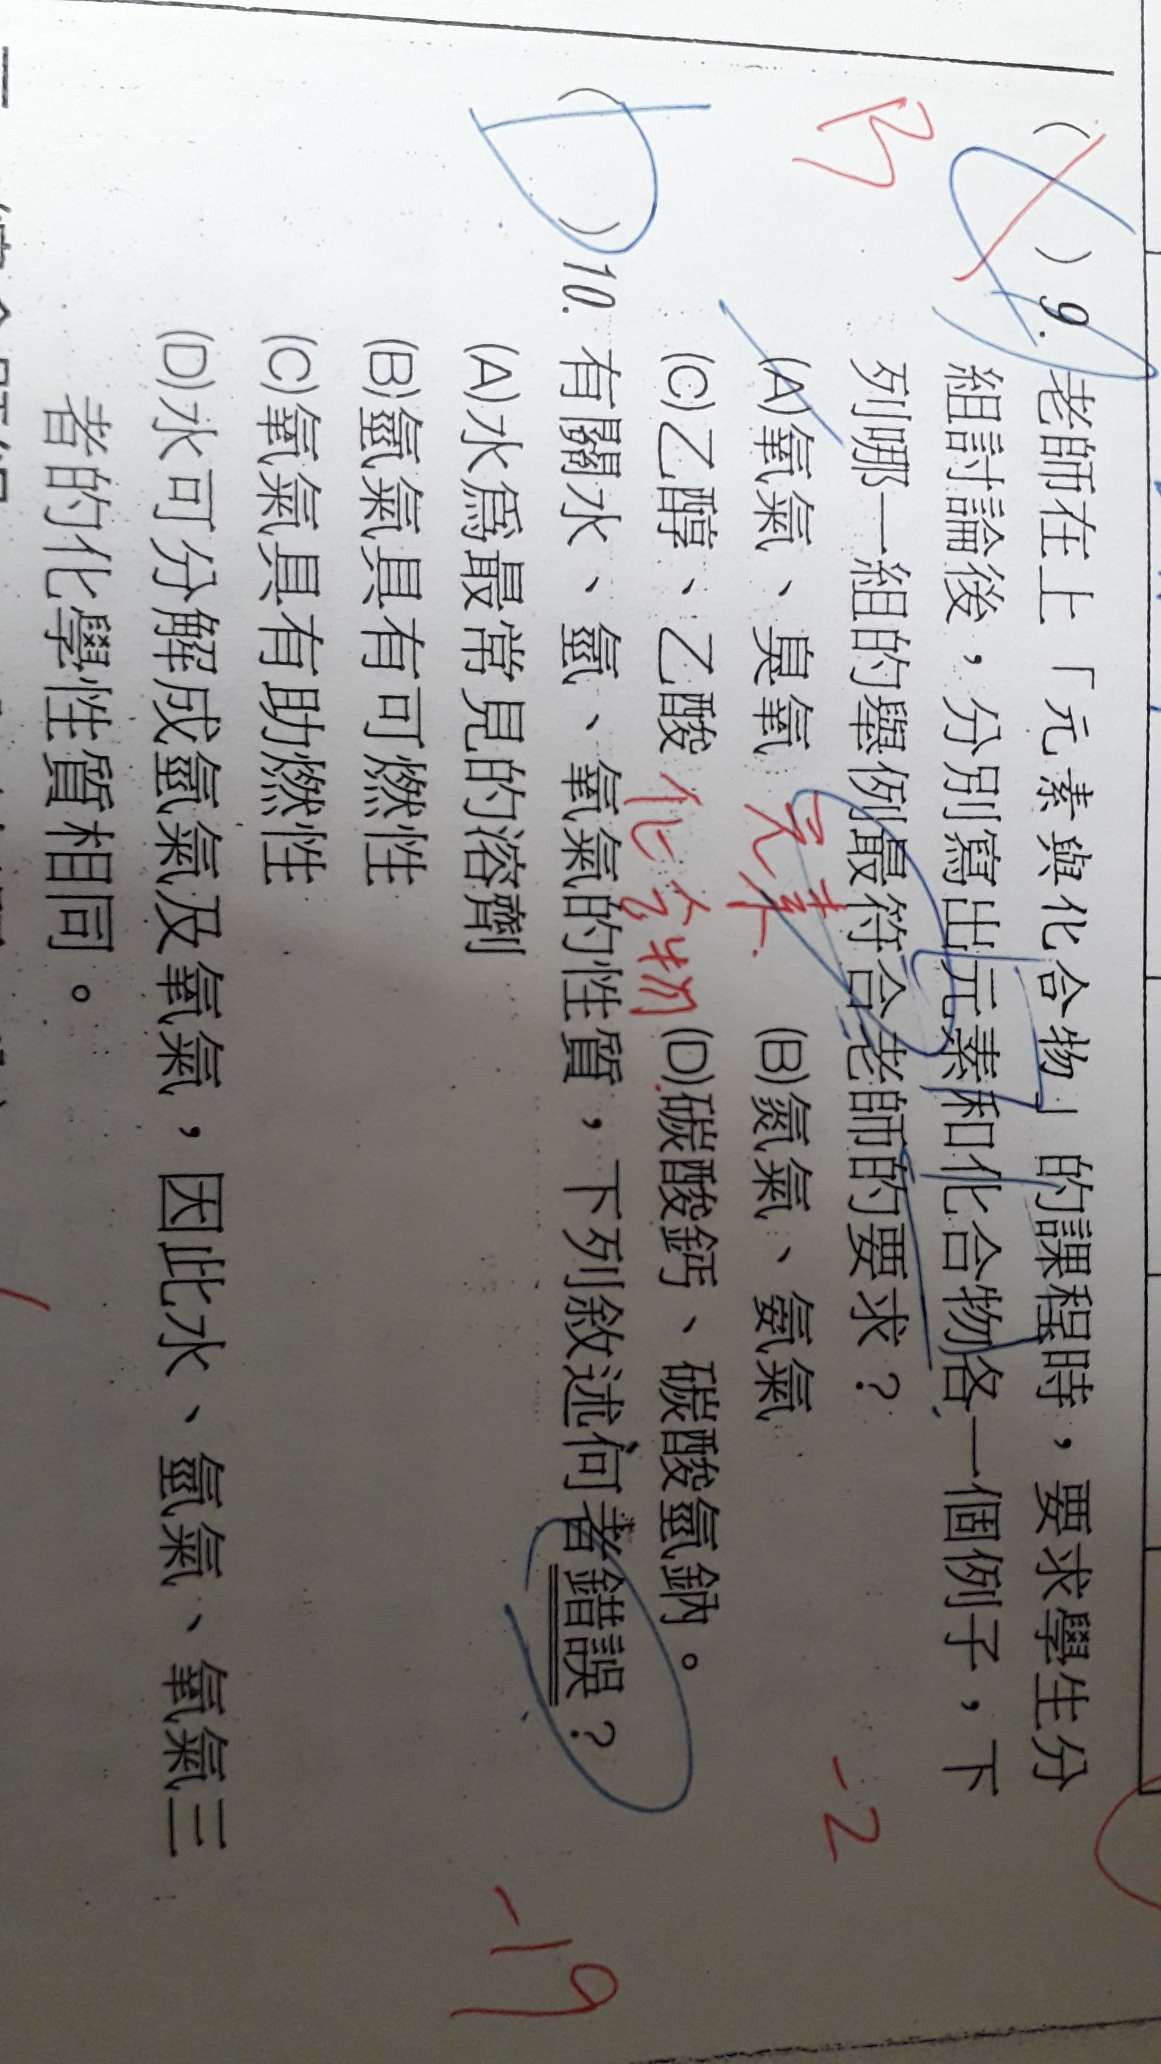 ( ) 9. 老師在上「元素與化合物」的課程時，要求學生分
組討論後，分別寫出元素和化合物各一個例子，下
列哪一組的舉例最符合老師的要求？
B
(A)氧氣、臭氧 元素 (B)氮氣、氨氣
(C)乙醇、乙酸 化合物 (D)碳酸鈣、碳酸氫鈉。
-2
( D ) 10. 有關水、氫、氧氣的性質，下列敘述何者錯誤？
(A)水為最常見的溶劑
(B)氫氣具有可燃性
(C)氧氣具有助燃性
(D)水可分解成氫氣及氧氣，因此水、氫氣、氧氣三
者的化學性質相同。
-19